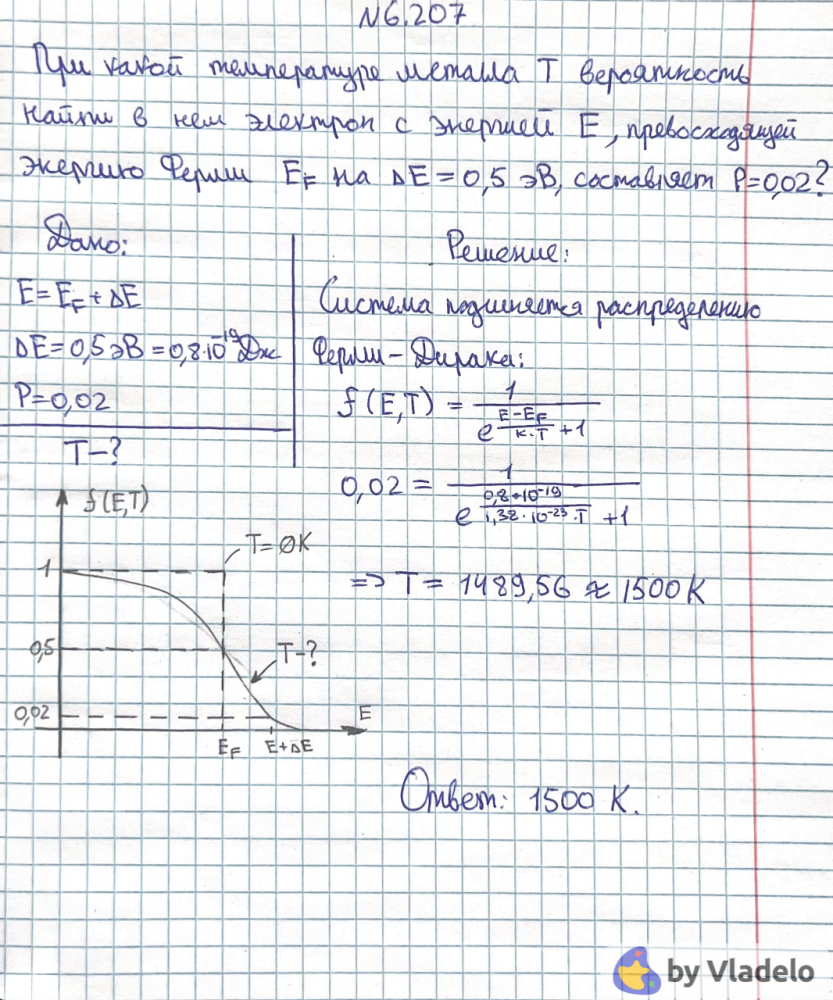 N6.207
При какой температуре металла T вероятность
найти в нем электрон с энергией E, превосходящей
энергию Ферми E_F на ΔE = 0,5 эВ, составляет P=0,02?
Дано:
E = E_F + ΔE
ΔE = 0,5 эВ = 0,8·10^-19 Дж
P = 0,02
T - ?
Решение:
Система подчиняется распределению
Ферми - Дирака:
f(E,T) = 1 / (e^((E-E_F)/(к·T)) + 1)
0,02 = 1 / (e^((0,8·10^-19)/(1,38·10^-23·T)) + 1)
=> T = 1489,56 ≈ 1500 K
f(E,T)
T = 0K
1
0,5
T - ?
0,02
E
E_F
E+ΔE
Ответ: 1500 K.
by Vladelo